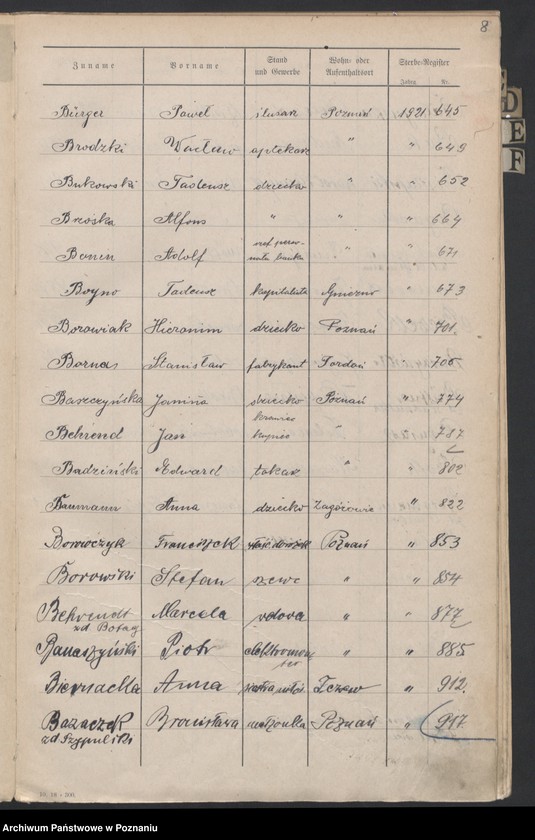 8
Zuname Vorname Stand und Gewerbe Wohn- oder Aufenthaltsort Sterbe-Register
Jahrg. Nr.
Bürger Paweł ślusarz Poznań 1921 645
Brodzki Wacław aptekarz " " 649
Bukowski Tadeusz dziecko " " 652
Brzóska Alfons " " " 664
Adolf " " 671
Boyno Tadeusz kapitalista Gniezno " 673
Borowiak Hieronim dziecko Poznań " 701.
Bornas Stanisław fabrykant Fordoń 706
Barczyńska Janina dziecko Poznań " 774
krawiec
Behrend Jan kupiec " " 787
Badziński Edward tokarz " " 802
Baumann Anna dziecko " 822
Borowczyk Franciszek Poznań " 853
Borowski Stefan szewc " " 854
Behrendt Marcela wdowa " " 877
zd. Botag
Banaszyński Piotr elektromonter " " 885
Biernacka Anna Tczew " 912.
Bazaczek Bronisława małżonka Poznań " 917
zd. Szypulski
D
E
F
Archiwum Państwowe w Poznaniu